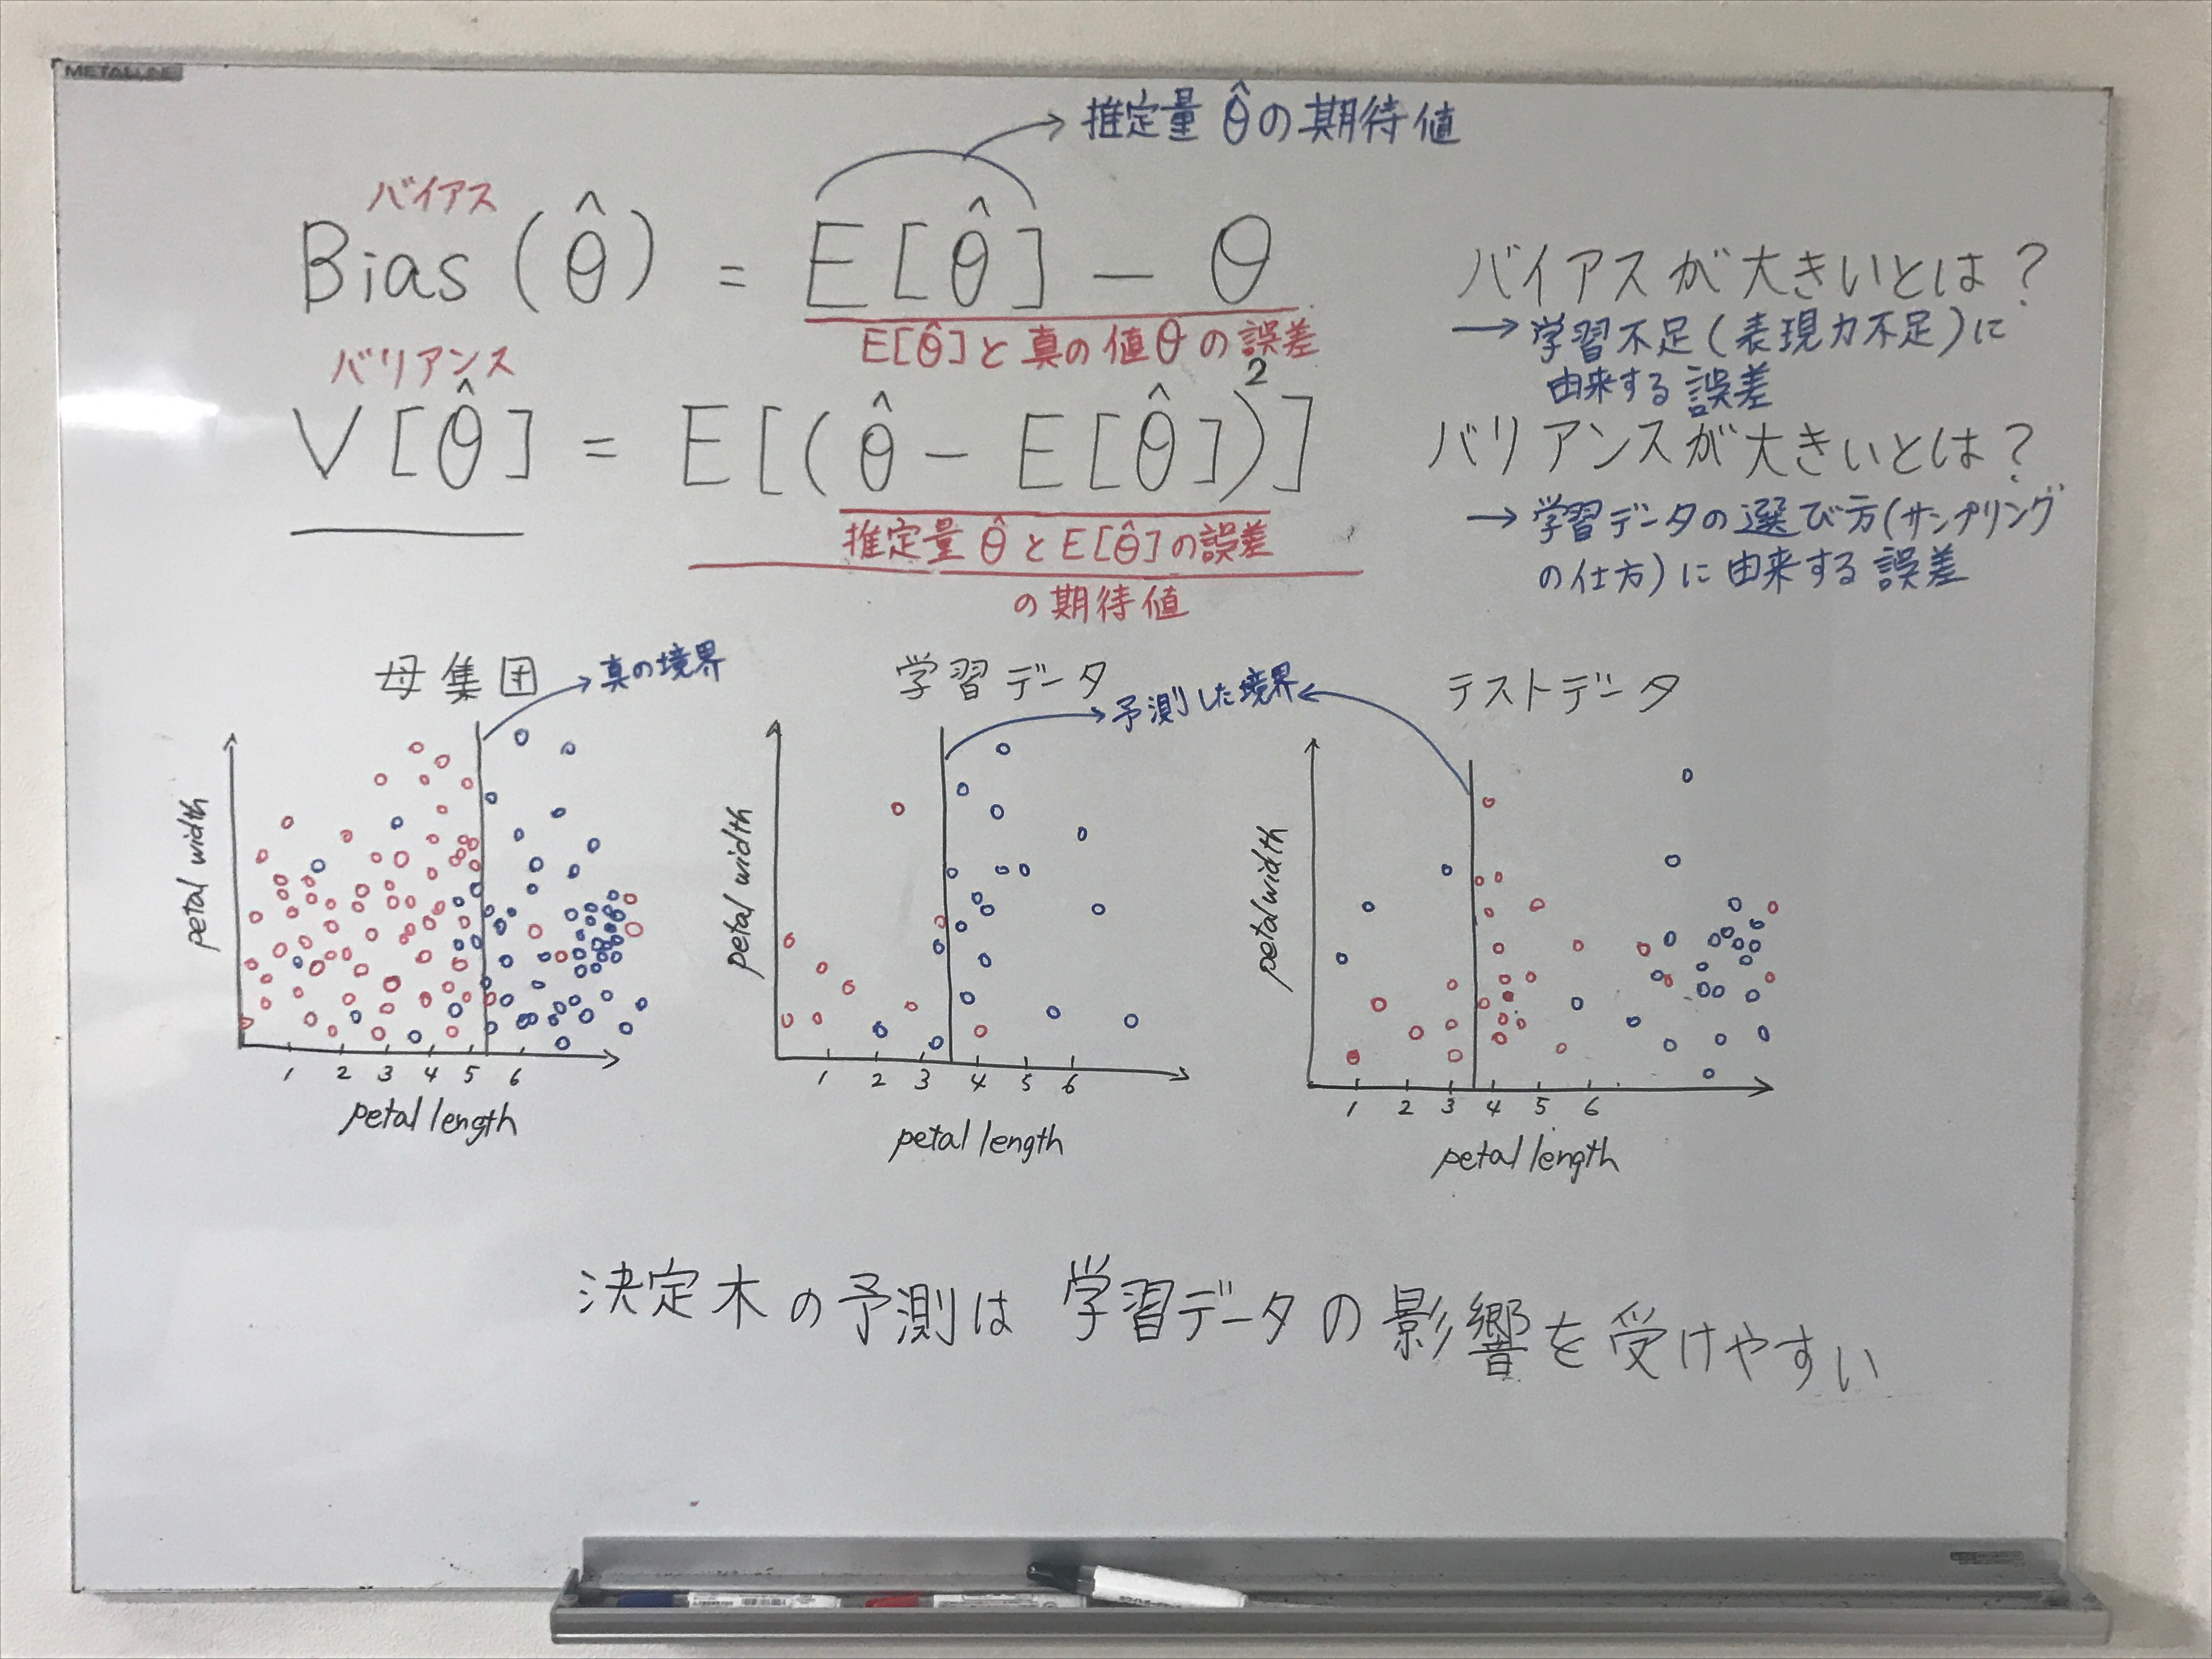 METALLINE
推定量 θ̂の期待値
バイアス
Bias(θ̂) = E[θ̂] − θ
E[θ̂]と真の値θの誤差
バリアンス
V[θ̂] = E[(θ̂ − E[θ̂])²]
推定量 θ̂ と E[θ̂]の誤差
の期待値
バイアスが大きいとは?
→ 学習不足(表現力不足)に
由来する誤差
バリアンスが大きいとは?
→ 学習データの選び方(サンプリング
の仕方)に由来する誤差
母集団
真の境界
petal width
1 2 3 4 5 6
petal length
学習データ
予測した境界
petal width
1 2 3 4 5 6
petal length
テストデータ
petal width
1 2 3 4 5 6
petal length
決定木の予測は 学習データの影響を受けやすい